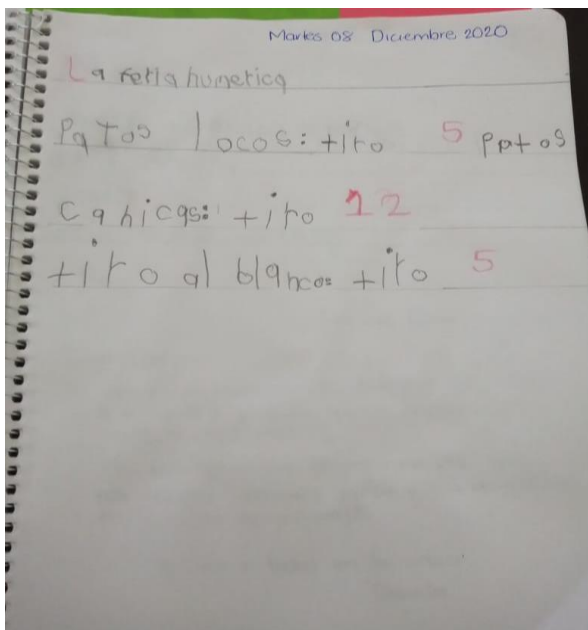 Martes 08 Diciembre 2020
La feria numerica
Patos locos: tiro 5 patos
canicas: tiro 12
tiro al blanco: tiro 5